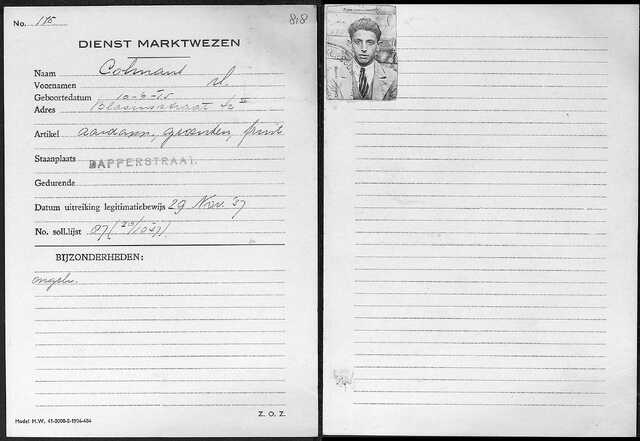 No. 175
88
DIENST MARKTWEZEN
Naam
Voornamen
Geboortedatum 10-6-
Adres Blasiusstraat
Artikel aardapp., groenten, fruit
Staanplaats DAPPERSTRAAT.
Gedurende
Datum uitreiking legitimatiebewijs 29 Nov. '37
No. soll.lijst 87 (
BIJZONDERHEDEN:
ongeh.
Z. O. Z.
Model M.W. 41-2000-5-1936-484